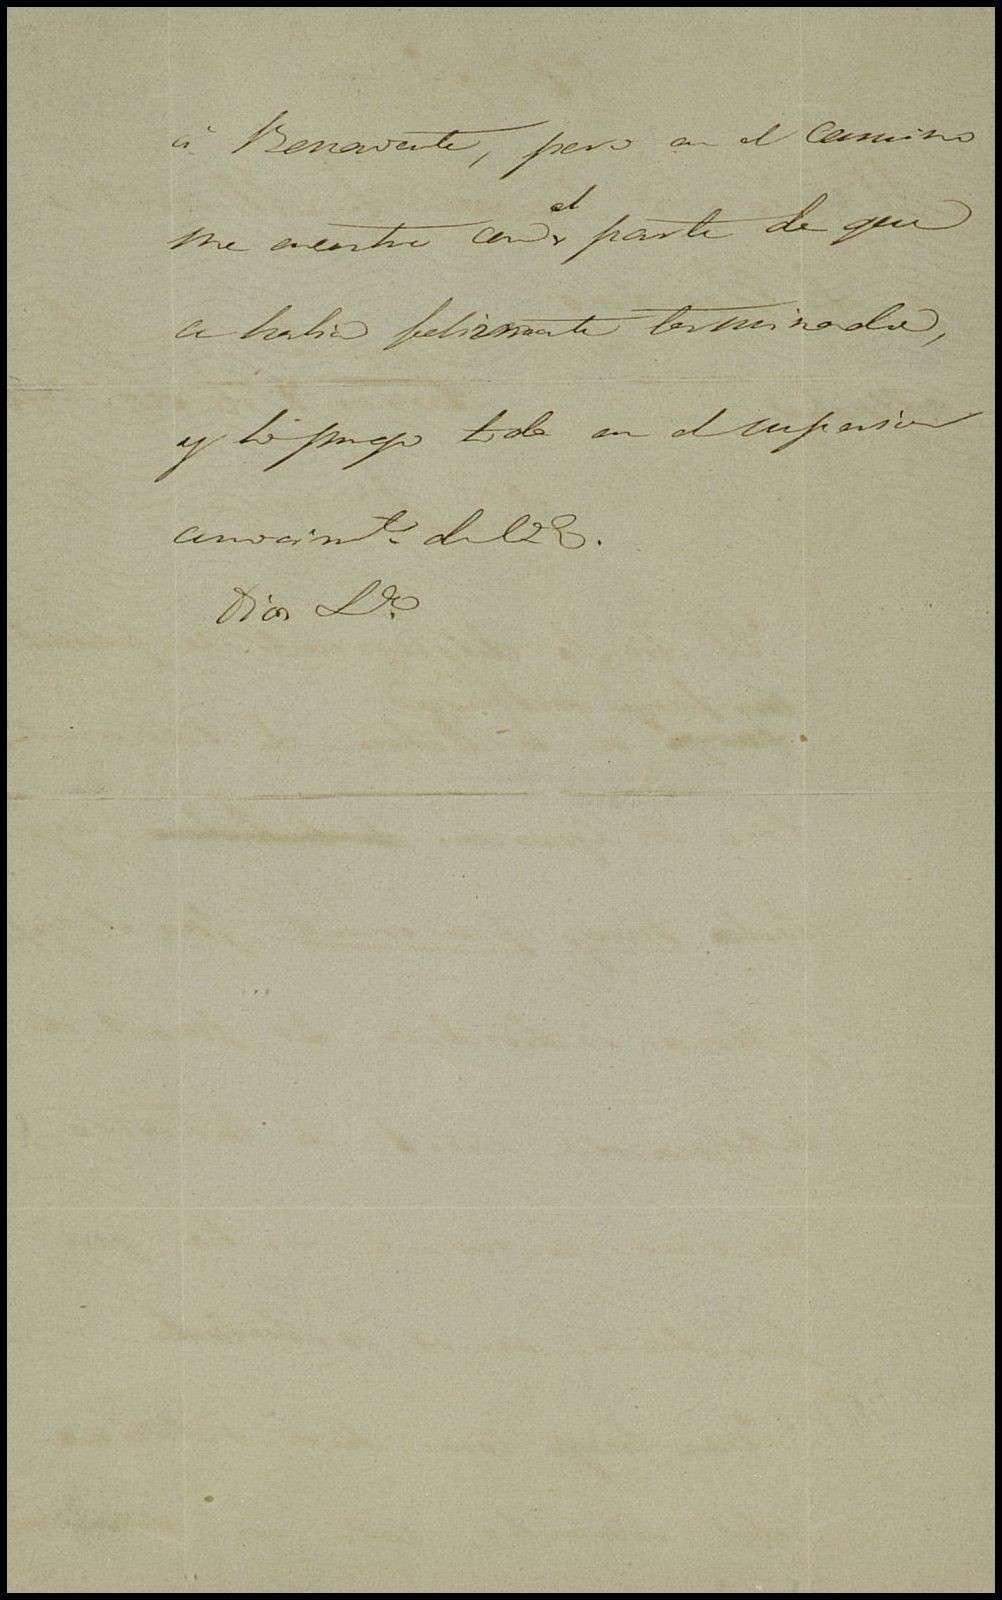 á Benavente, pero en el camino
me encontre con el parte de que
a habia felizmente terminado,
y lo pongo todo en el superior
conocimto. de V.E.
Dios &a.